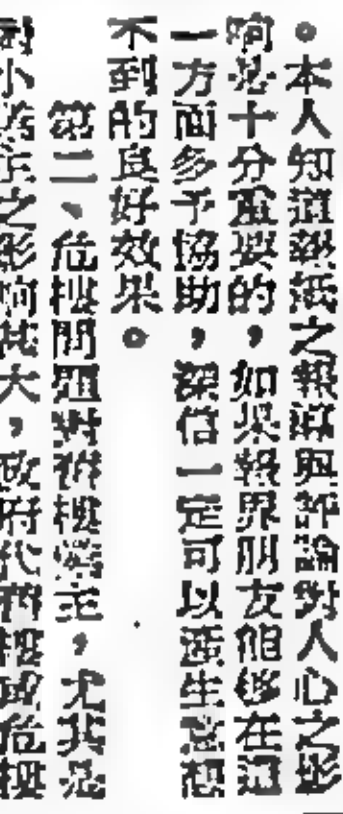 。本人知道報紙之報導與評論對人心之影
响是十分重要的,如果報界朋友能够在這
一方面多予協助,深信一定可以產生意想
不到的良好效果。
第二、危樓問題對舊樓業主,尤其是
對小業主之影响甚大,政府代拆樓或危樓